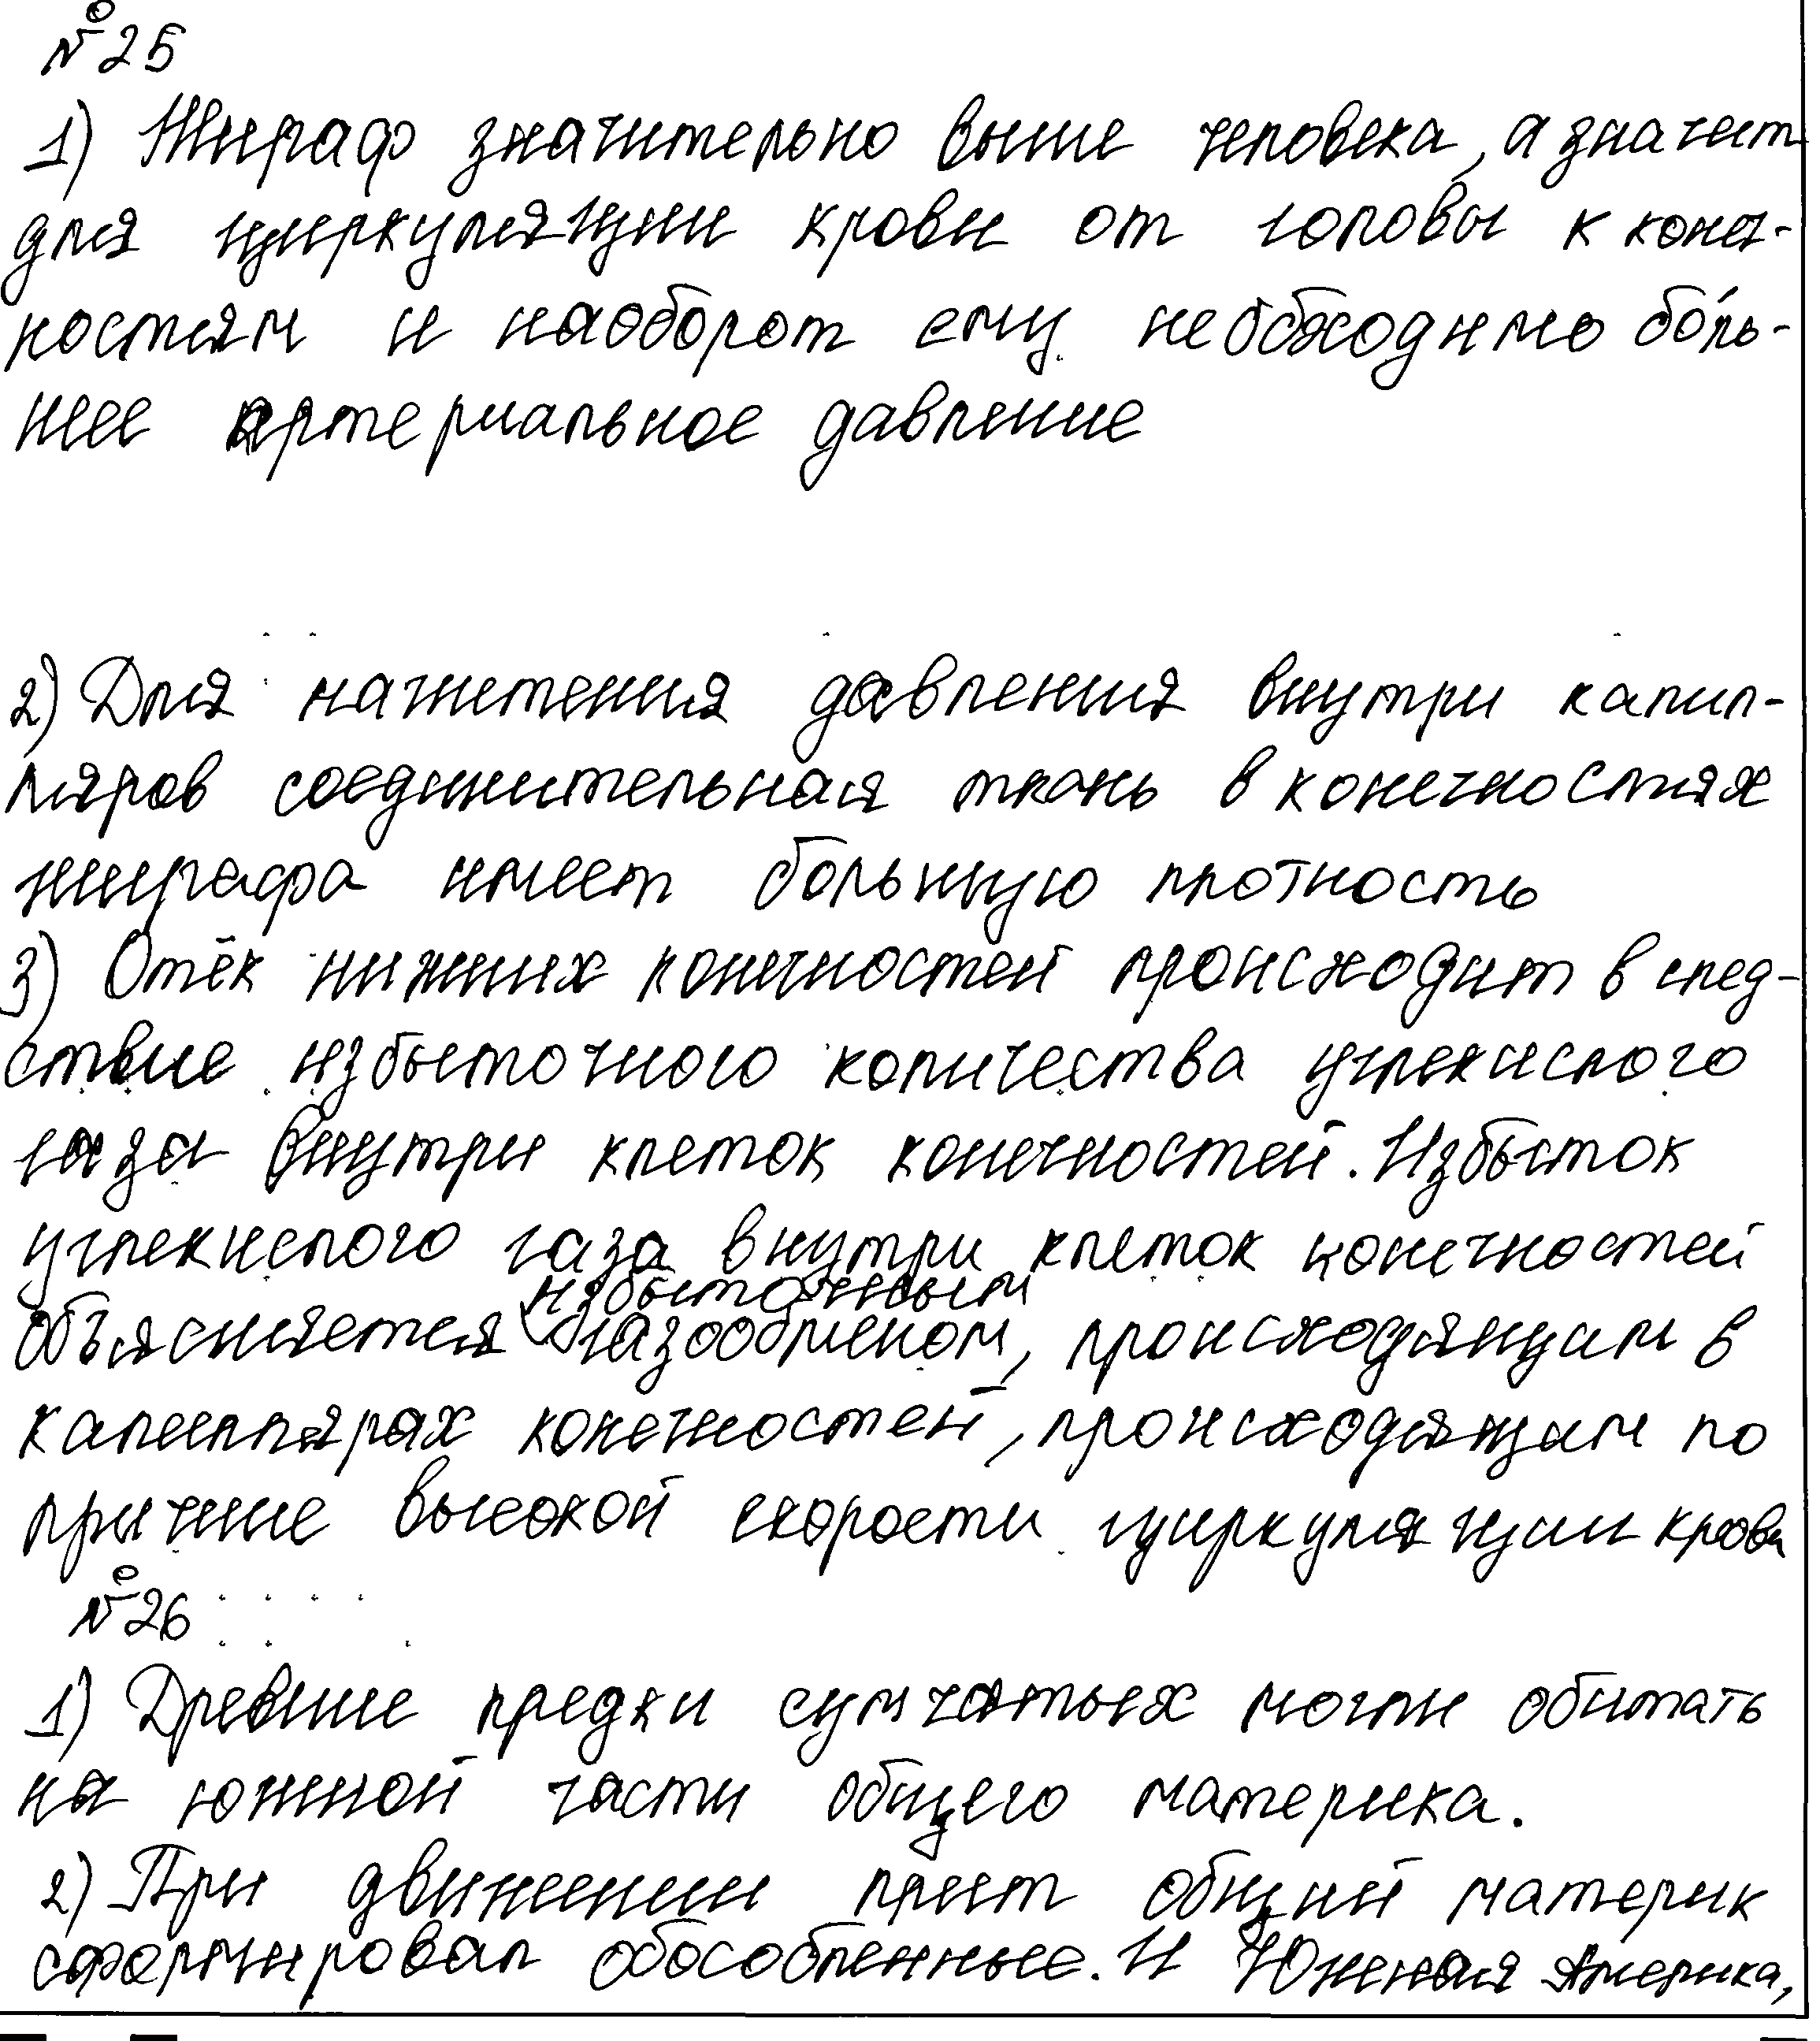 №25
1) Жираф значительно выше человека, а значит
для циркуляции крови от головы к конеч-
ностям и наоборот ему необходимо бóль-
шее артериальное давление
2) Для нагнетения давления внутри капил-
ляров соединительная ткань в конечностях
жирафа имеет большую плотность
3) Отёк нижних конечностей происходит в след-
ствие избыточного количества углекислого
газа внутри клеток конечностей. Избыток
углекислого газа внутри клеток конечностей
избыточным
объясняется газообменом, происходящим в
капиллярах конечностей, происходящим по
причине высокой скорости циркуляции крови
№26
1) Древние предки сумчатых могли обитать
на южной части общего материка.
2) При движении плит общий материк
сформировал обособленные. И Южная Америка,